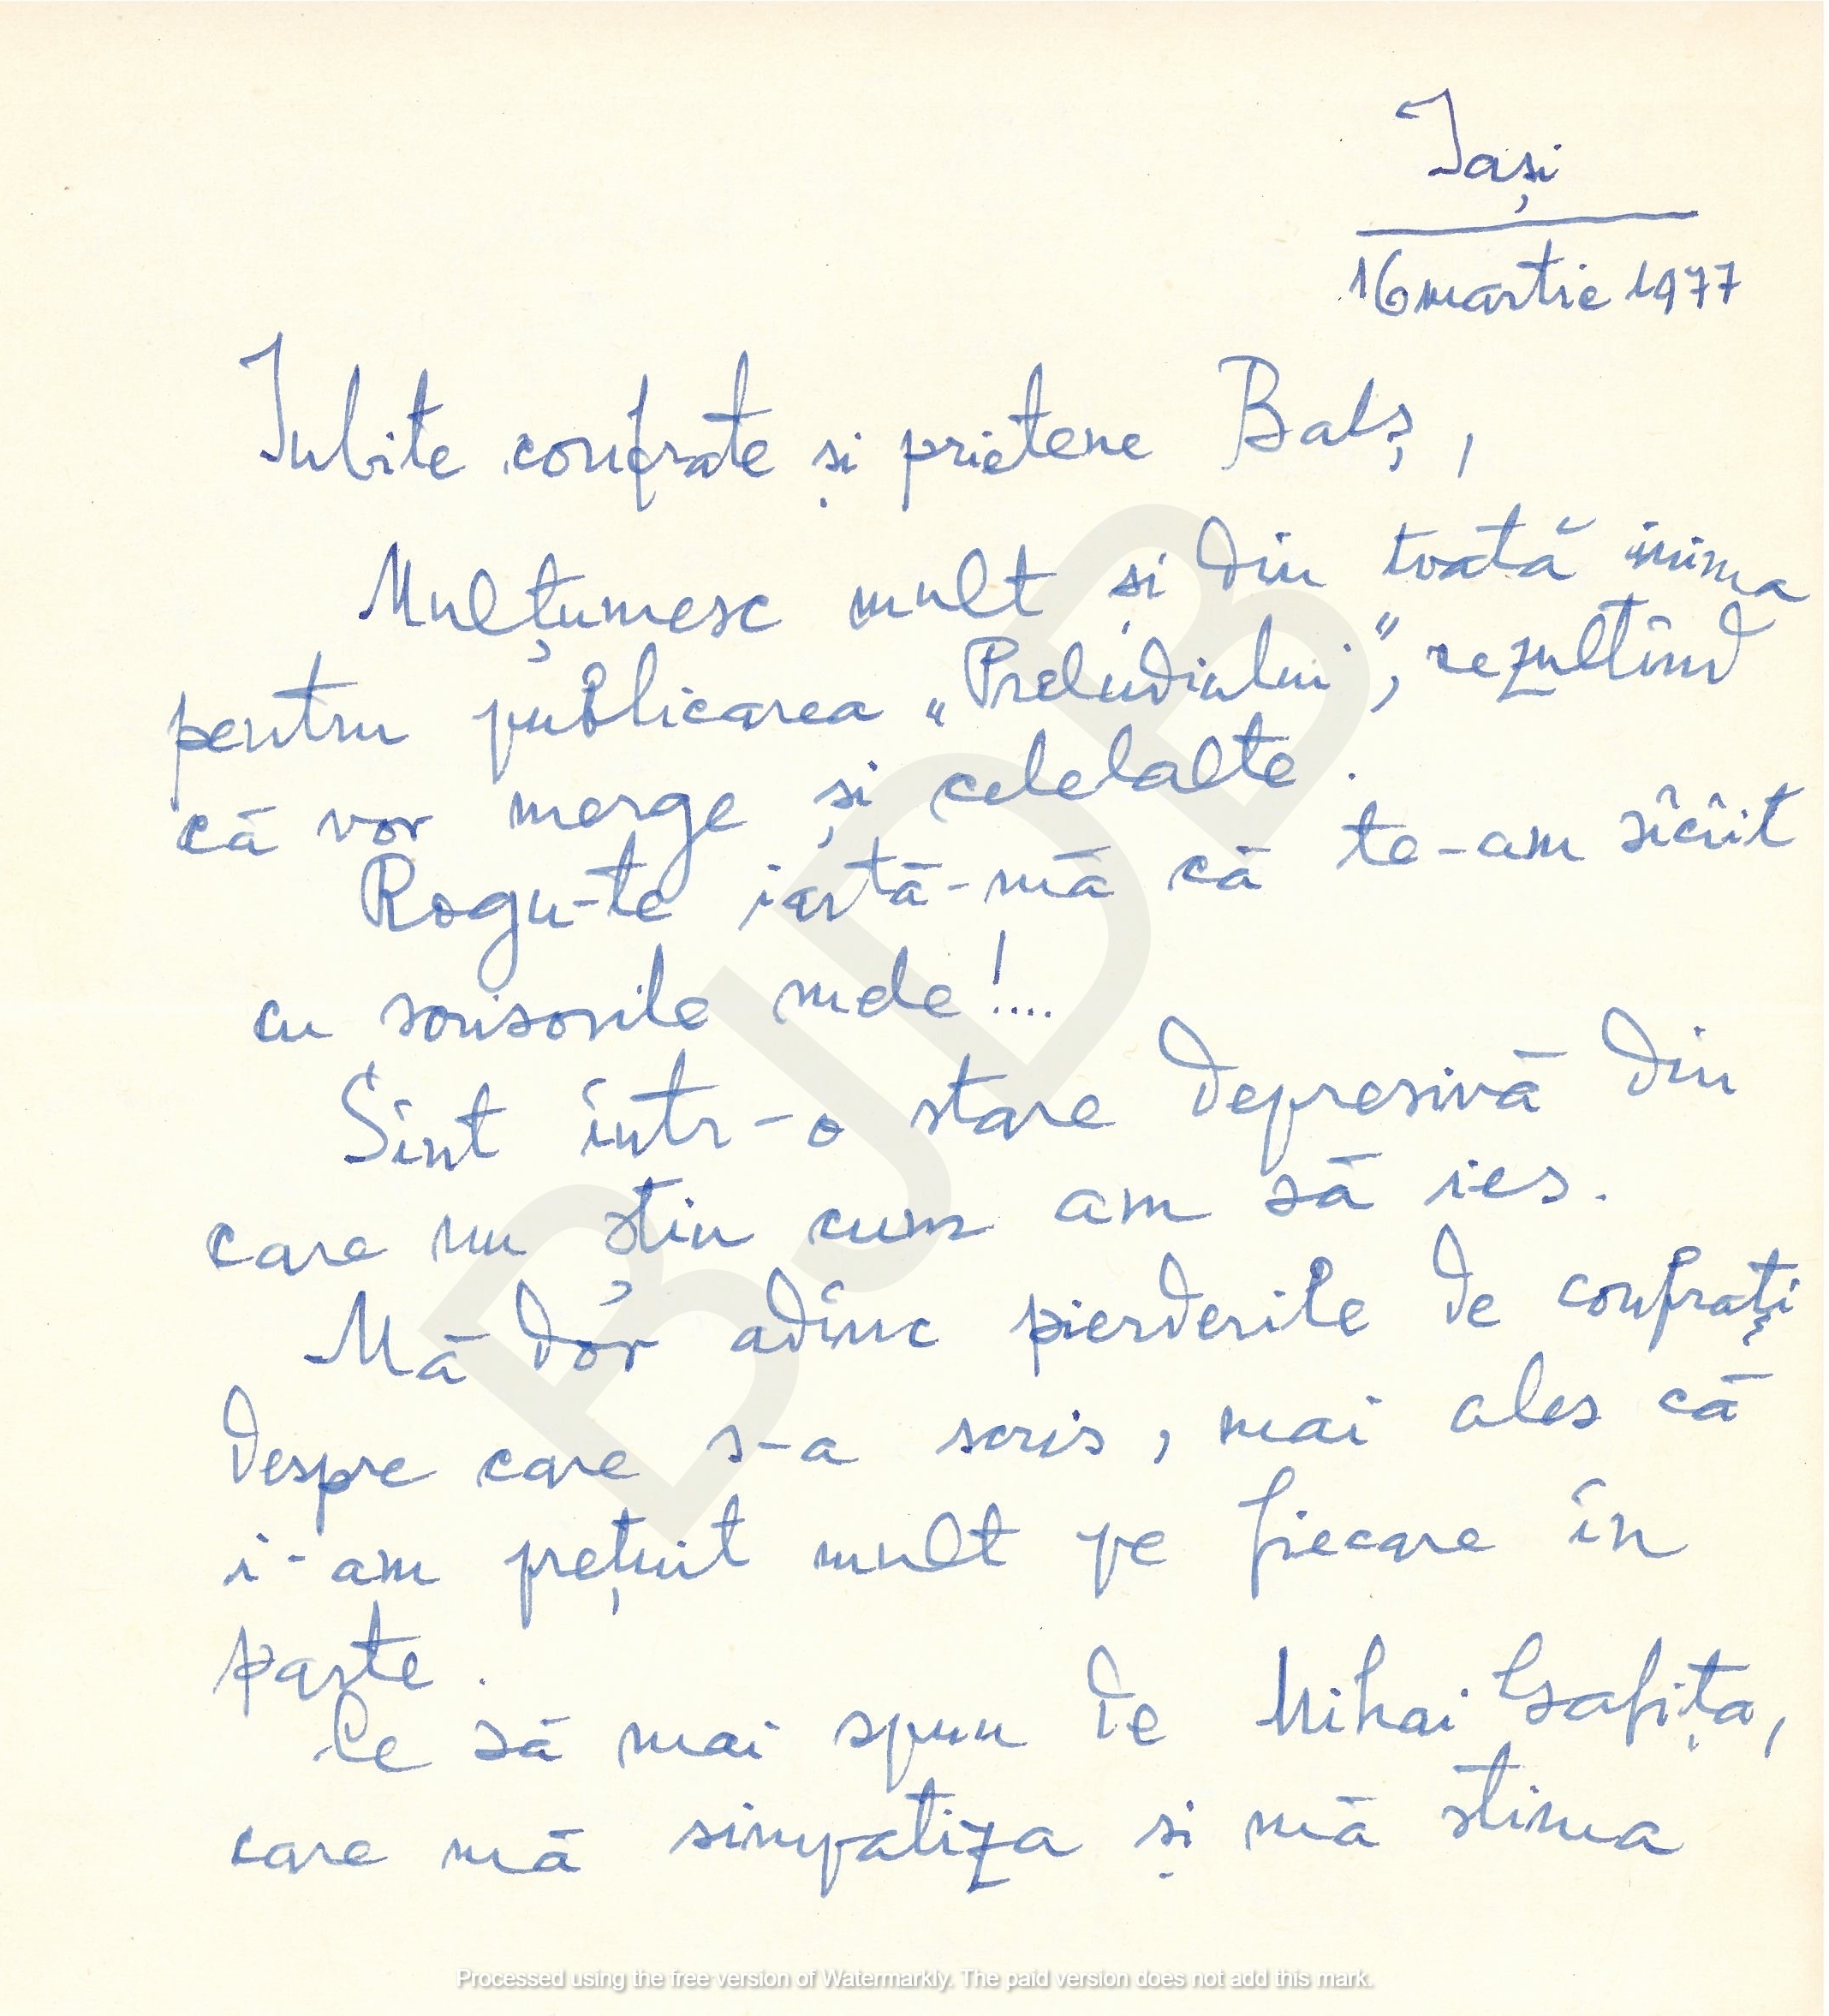 Iași
16 martie 1977
Iubite confrate și prietene Balș,
Mulțumesc mult și din toată inima
pentru publicarea „Preludiului”, rezultînd
că vor merge și celelalte.
Rogu-te iartă-mă că te-am sîcîit
cu scrisorile mele!....
Sînt într-o stare depresivă din
care nu știu cum am să ies.
Mă dor adînc pierderile de confrați
despre care s-a scris, mai ales că
i-am prețuit mult pe fiecare în
parte.
Ce să mai spun de Mihai Gafița,
care mă simpatiza și mă stima
BJDB
Processed using the free version of Watermarkly. The paid version does not add this mark.